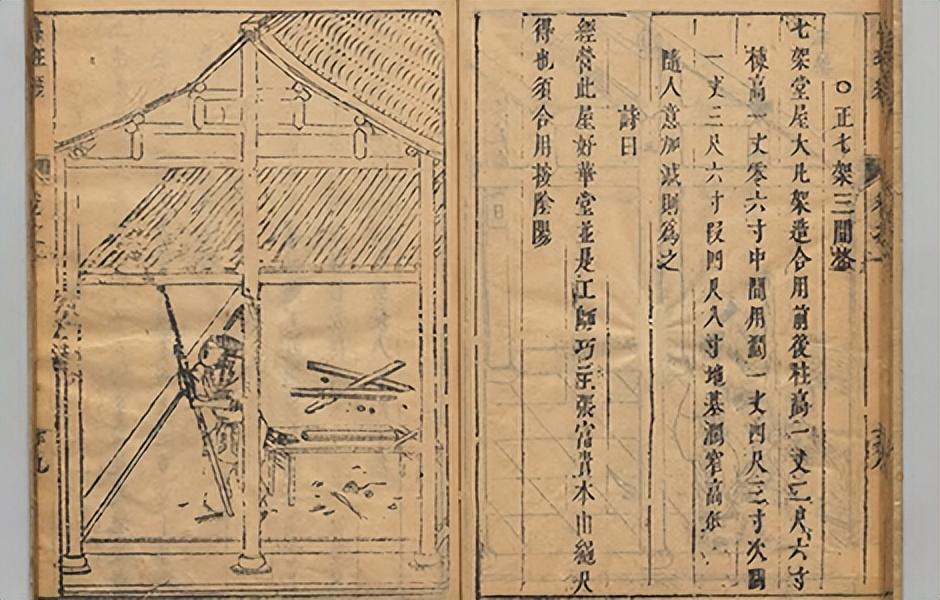 ○正七架三間格
七架堂屋大凡架造合用前後柱高一丈二尺六寸
棟高一丈零六寸中間用濶一丈四尺三寸次濶
一丈二尺六寸段四尺八寸地基濶窄高低
隨人意加減則為之
詩曰
經營此屋好華堂並是工師巧主張富貴本由繩尺
得也須合用按陰陽